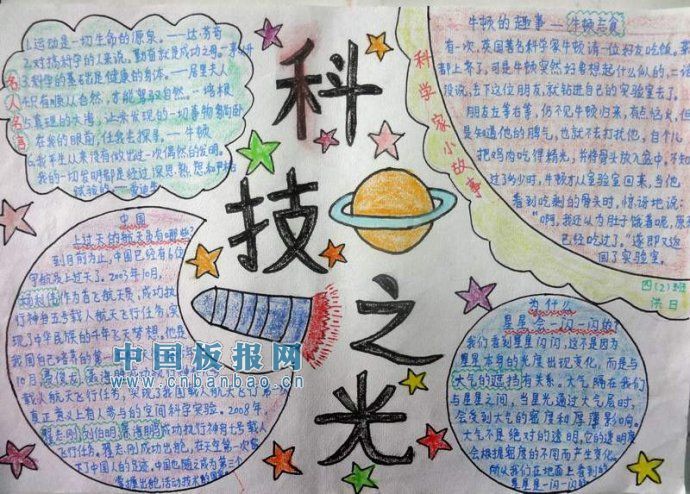 名人名言
1.运动是一切生命的源泉。——达·芬奇
2.对搞科学的人来说,勤奋就是成功之母。
3.科学的基础是健康的身体。——居里夫人
4.只有顺从自然,才能驾驭自然。——培根
5.真理的大海,让未发现的一切事物躺卧
在我的眼前,任我去探寻。——牛顿
6.我平生从来没有做出过一次偶然的发明。
我的一切发明都是经过深思熟虑和严格
试验的
科技之光
科学家小故事
牛顿的趣事——牛顿忘食
有一次,英国著名科学家牛顿请一位朋友吃饭。菜
都上齐了,可是牛顿突然
没说,丢下这位朋友,就钻进自己的实验室去了。
朋友左等右等,仍不见牛顿归来,有点恼火,但
是知道他的脾气,也就不去打扰他,自个儿
把鸡肉吃得精光,并将骨头放入盘中,不知
过了多少时,牛顿才从实验室回来,当他
看到吃剩的骨头时,惊讶地说:
“啊,我还以为肚子饿着呢,原来
已经吃过了。”遂即又返
回了实验室。
四(2)班
洪日
中国
上过天的航天员有哪些?
到目前为止,中国已经有6位
宇航员上过天了。2003年10月,
杨利伟作为首飞航天员,成功执
行神舟五号载人航天飞行任务,实
现了中华民族的千年飞天梦想,他是
我国自己培养的第一
10月,费俊龙、聂海胜
载人航天飞行任务,实现了我国载人航天飞行第一次
真正意义上有人参与的空间科学实验。2008年,
翟志刚、刘伯明、景海鹏成功执行神舟七号载人
飞行任务。翟志刚成功出舱,在太空第一次留
下了中国人的足迹,中国也随之成为第三个
掌握出舱活动技术的国家。
为什么
星星会一闪一闪的?
我们看到星星闪闪,这不是因为
星星本身的光度出现变化,而是与
大气的遮挡有关系。大气隔在我们
与星星之间,当星光通过大气层时,
会受到大气的密度和厚薄影响。
大气不是绝对的透明,它的透明度
会根据密度的不同而产生变化。
所以我们在地面上看到的
星星是一闪一闪的
中国板报网
www.cnbanbao.cn